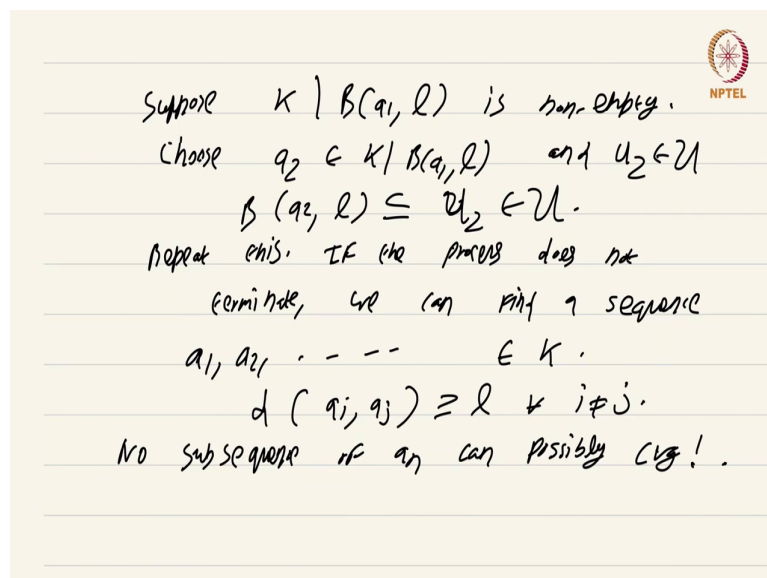 NPTEL
Suppose K \ B(a₁, l) is non-empty.
Choose a₂ ∈ K \ B(a₁, l) and U₂ ∈ 𝒰
B(a₂, l) ⊆ U₂ ∈ 𝒰.
Repeat this. If the process does not
terminate, we can find a sequence
a₁, a₂, . - - - ∈ K.
d(aᵢ, aⱼ) ≥ l ∀ i ≠ j.
No subsequence of aₙ can possibly cvg!.